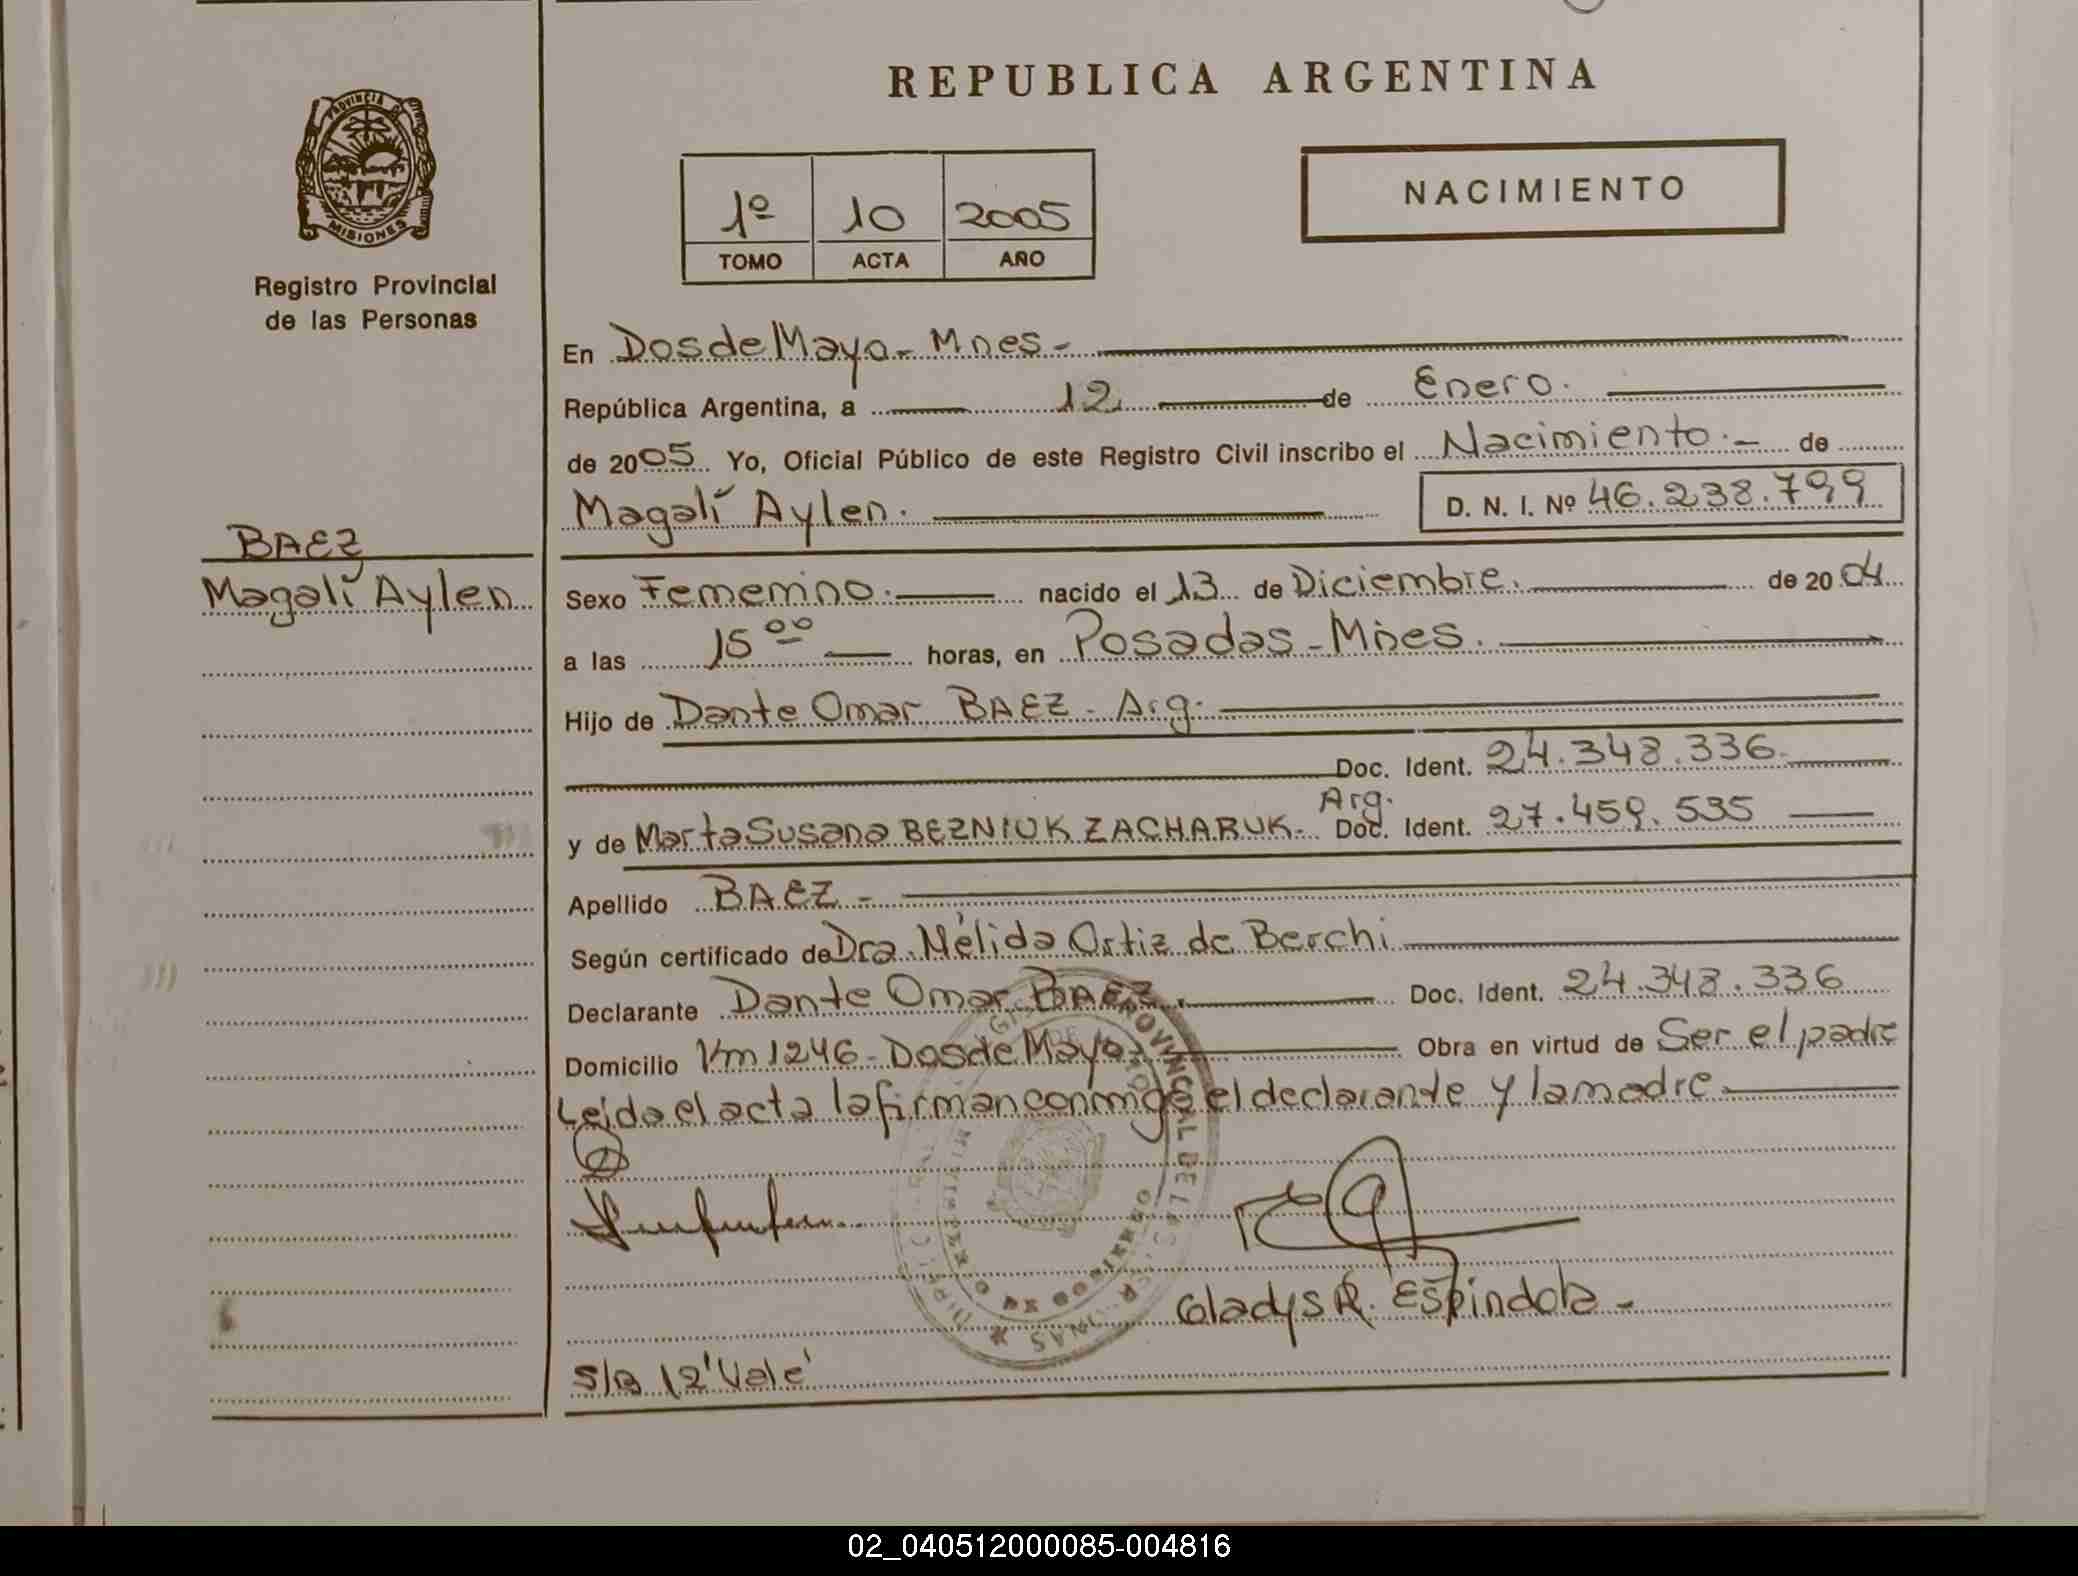 REPUBLICA ARGENTINA
PROVINCIA D
MISIONES
Registro Provincial
de las Personas
1º 10 2005
TOMO ACTA AÑO
NACIMIENTO
En Dos de Mayo - Mnes -
República Argentina, a 12 de Enero.
de 2005 Yo, Oficial Público de este Registro Civil inscribo el Nacimiento.- de
Magalí Aylen. D. N. I. Nº 46.238.799
BAEZ
Magalí Aylen
Sexo Femenino. nacido el 13 de Diciembre. de 2004
a las 15 00 horas, en Posadas - Mnes.
Hijo de Dante Omar BAEZ - Arg.
Doc. Ident. 24.348.336.
y de Marta Susana BEZNIUK ZACHARUK - Arg. Doc. Ident. 27.459.535
Apellido BAEZ -
Según certificado de Dra. Nélida Ortiz de Berchi
Declarante Dante Omar BAEZ. Doc. Ident. 24.348.336
Domicilio Km 1246 - Dos de Mayo. Obra en virtud de Ser el padre
Leída el acta la firman conmigo el declarante y la madre
Gladys R. Espíndola -
S/B 12 'Vale'
02_040512000085-004816